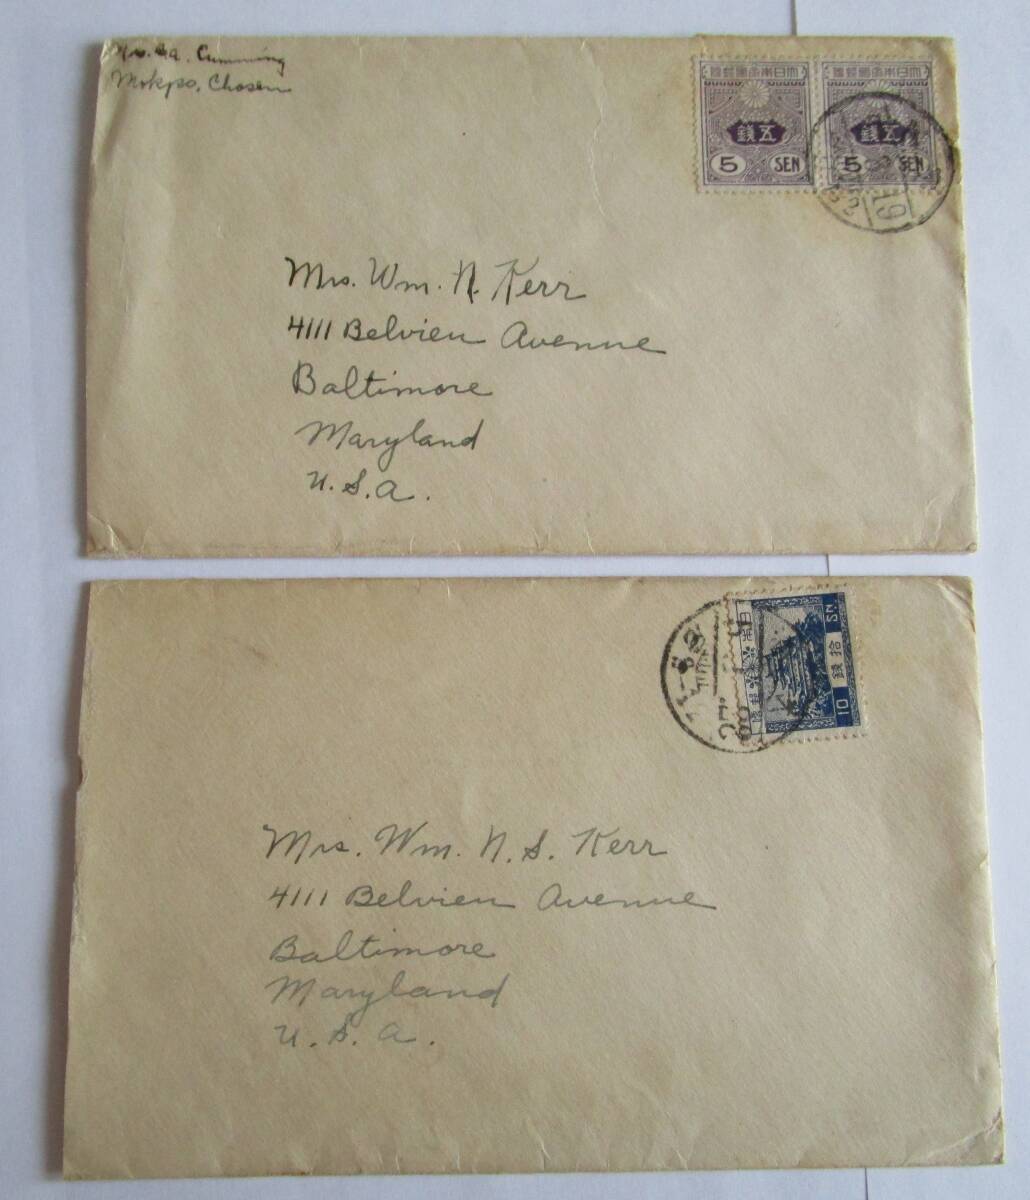 Cumming
Mokpo, Chosen
大日本帝國郵便
五錢
5 SEN
大日本帝國郵便
五錢
5 SEN
19
Mrs. Wm. N. Kerr
4111 Belvieu Avenue
Baltimore
Maryland
U.S.A.
拾錢
10 SN
Mrs. Wm. N. S. Kerr
4111 Belvieu Avenue
Baltimore
Maryland
U.S.A.